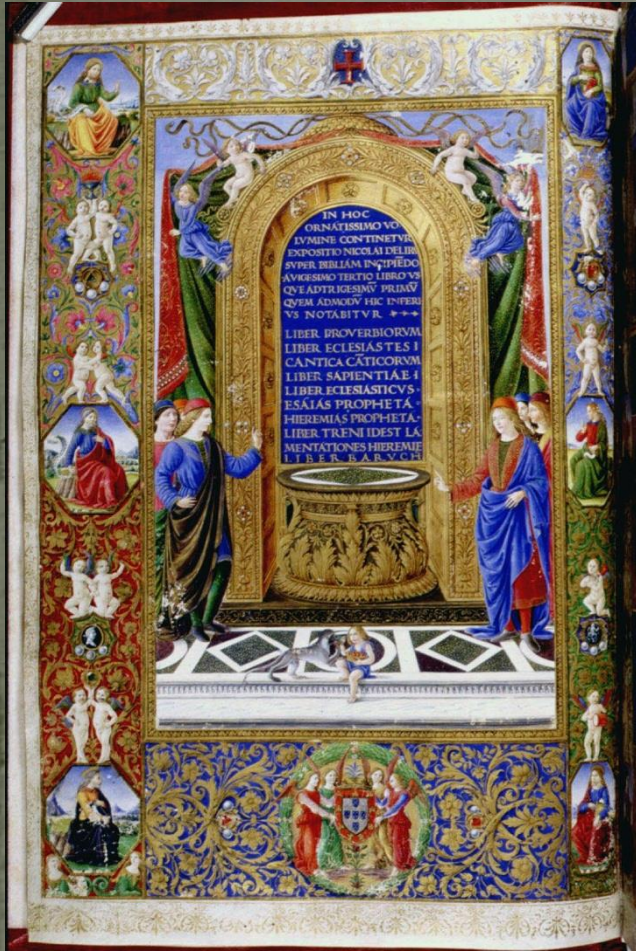 IN HOC
ORNATISSIMO VO
LVMINE CONTINETVR
EXPOSITIO NICOLAI DELIRA
SVPER BIBLIAM INCIPIĒDO
AVIGESIMO TERTIO LIBRO VS
QVE ADTRIGESIMV̄ PRIMV̄
QVEM ADMODV̄ HIC INFERI
VS NOTABITVR
LIBER PROVERBIORVM
LIBER ECLESIASTES I
CANTICA CĀTICORVM
LIBER SAPIENTIAE I
LIBER ECLESIASTICVS
ESAIAS PROPHETA
HIEREMIAS PROPHETA
LIBER TRENI IDEST LA
MENTATIONES HIEREMIE
LIBER BARVCH